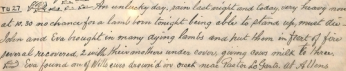 TO 27 An unlucky day, rain last night and today, very heavy now
at 10.30 no chance for a lamb born tonight being able to stand up, must die.
John and Eva brought in many dying lambs and put them in front of fire
several recovered, 2 with their mothers under covers giving own milk to them
Eva found one of Will's ewes drowned in creek near Pastor Le Grete at Allens